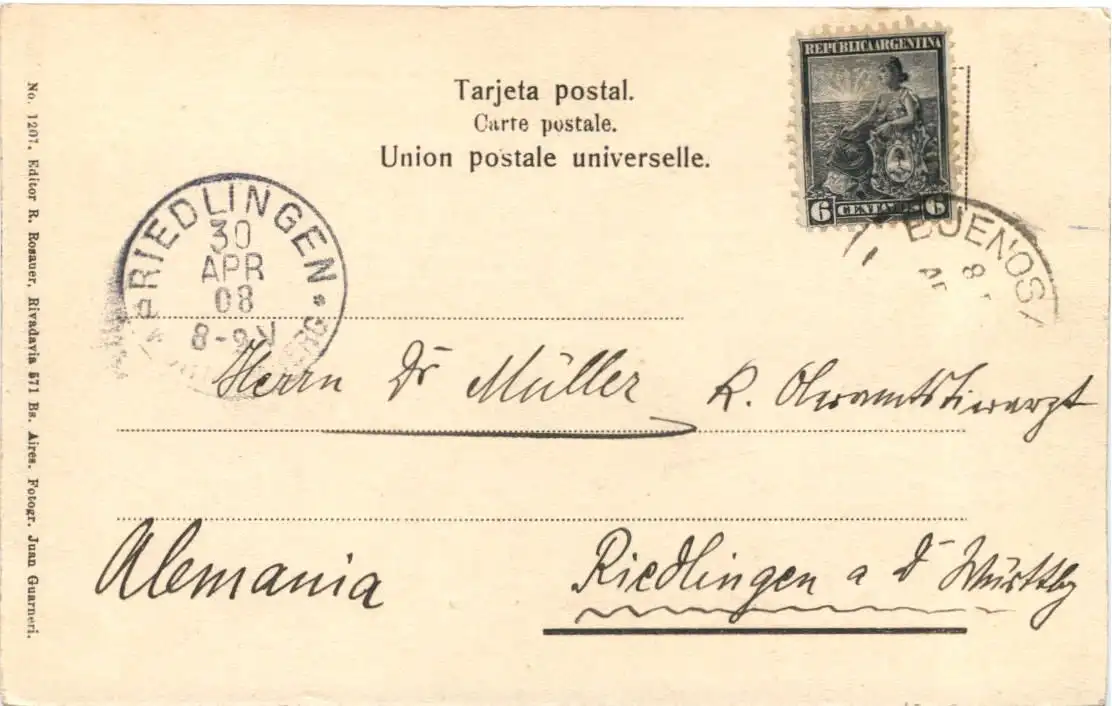 Tarjeta postal.
Carte postale.
Union postale universelle.
REPÚBLICA ARGENTINA
6 CENTAVOS 6
BUENOS
8
RIEDLINGEN
30
APR
08
8-9 V
Herrn Dr Müller K. Oberamtstierarzt
Alemania Riedlingen a D Württbg
No. 1207. Editor R. Rosauer, Rivadavia 571 Bs. Aires. Fotogr. Juan Guarneri.